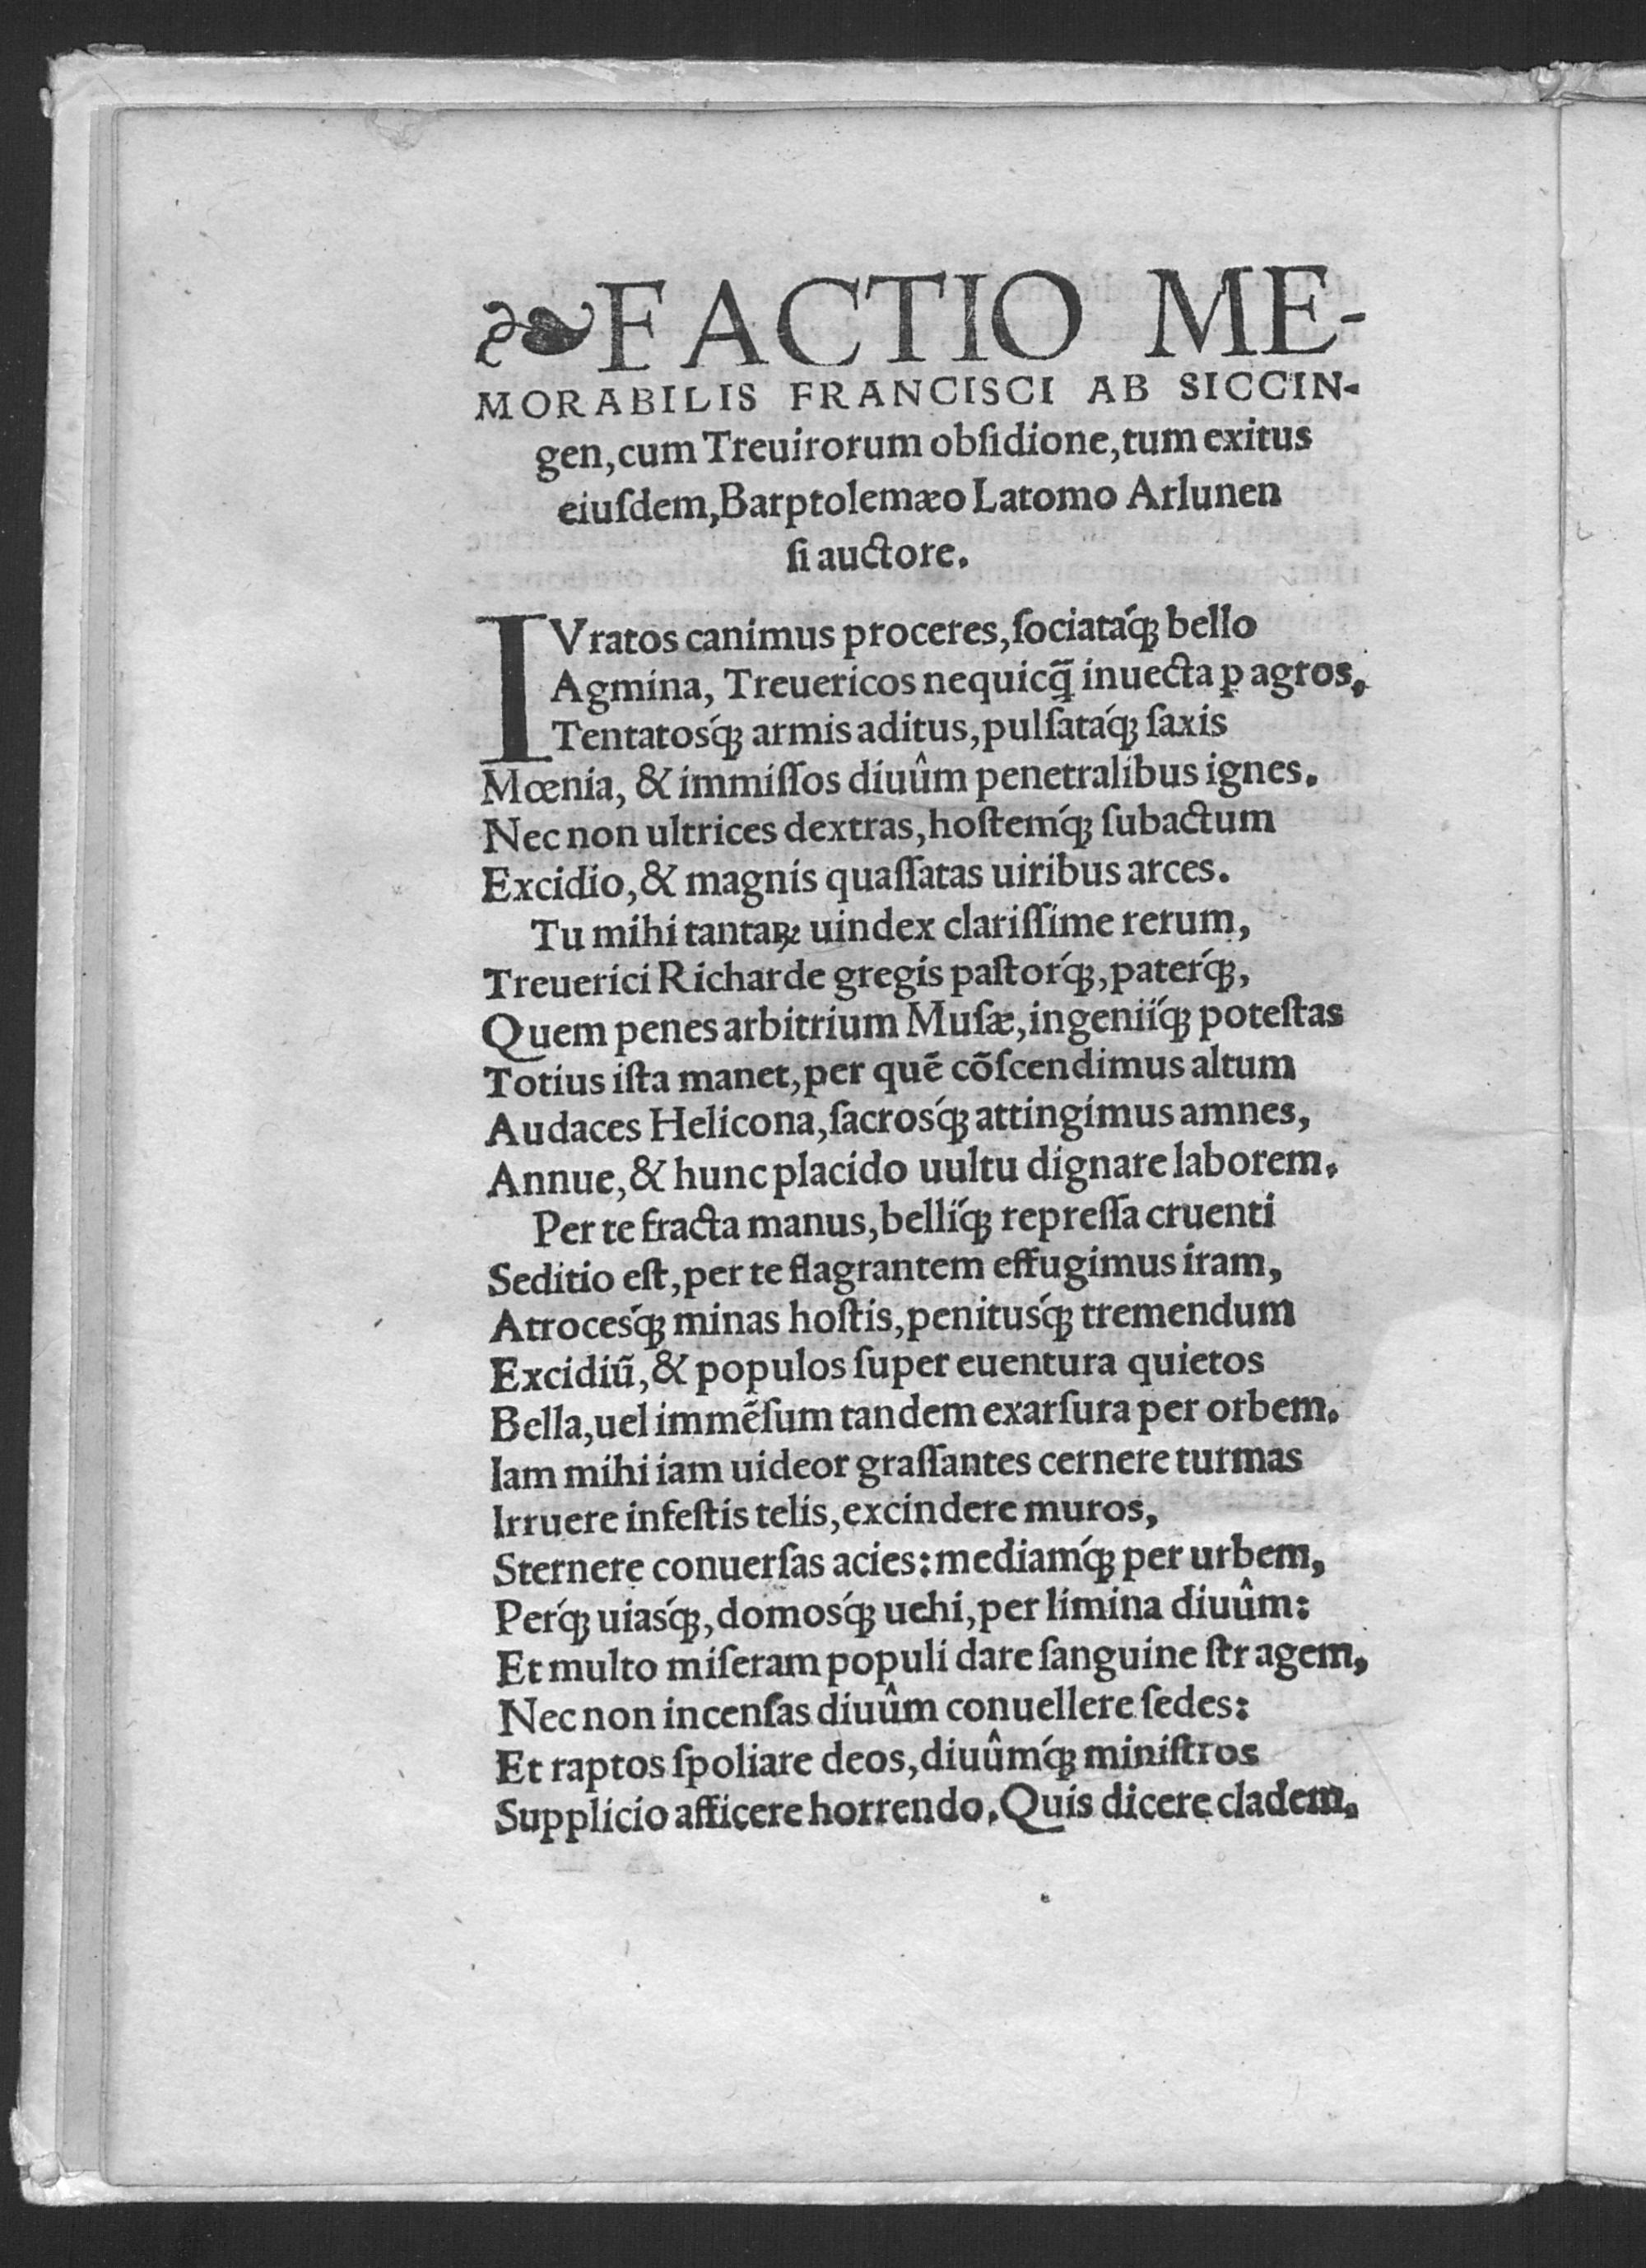 ❧FACTIO ME-
MORABILIS FRANCISCI AB SICCIN-
gen, cum Treuirorum obſidione, tum exitus
eiuſdem, Barptolemæo Latomo Arlunen
ſi auctore.
IVratos canimus proceres, ſociatáqꝫ bello
Agmina, Treuericos nequicq̃ inuecta ꝑ agros,
Tentatosq́ꝫ armis aditus, pulſatáqꝫ ſaxis
Mœnia, & immiſſos diuûm penetralibus ignes.
Nec non ultrices dextras, hoſtemq́ꝫ ſubactum
Excidio, & magnis quaſſatas uiribus arces.
Tu mihi tantaꝝ uindex clariſſime rerum,
Treuerici Richarde gregis paſtorq́ꝫ, paterq́ꝫ,
Quem penes arbitrium Muſæ, ingeniiq́ꝫ poteſtas
Totius iſta manet, per quē cōſcendimus altum
Audaces Helicona, ſacrosq́ꝫ attingimus amnes,
Annue, & hunc placido uultu dignare laborem.
Per te fracta manus, belliq́ꝫ repreſſa cruenti
Seditio eſt, per te flagrantem effugimus iram,
Atrocesq́ꝫ minas hoſtis, penitusq́ꝫ tremendum
Excidiū, & populos ſuper euentura quietos
Bella, uel immēſum tandem exarſura per orbem.
Iam mihi iam uideor graſſantes cernere turmas
Irruere infeſtis telis, excindere muros,
Sternere conuerſas acies: mediamq́ꝫ per urbem,
Perq́ꝫ uiasq́ꝫ, domosq́ꝫ uehi, per limina diuûm:
Et multo miſeram populi dare ſanguine ſtragem,
Nec non incenſas diuûm conuellere ſedes:
Et raptos ſpoliare deos, diuûmq́ꝫ miniſtros
Supplicio afficere horrendo. Quis dicere cladem.